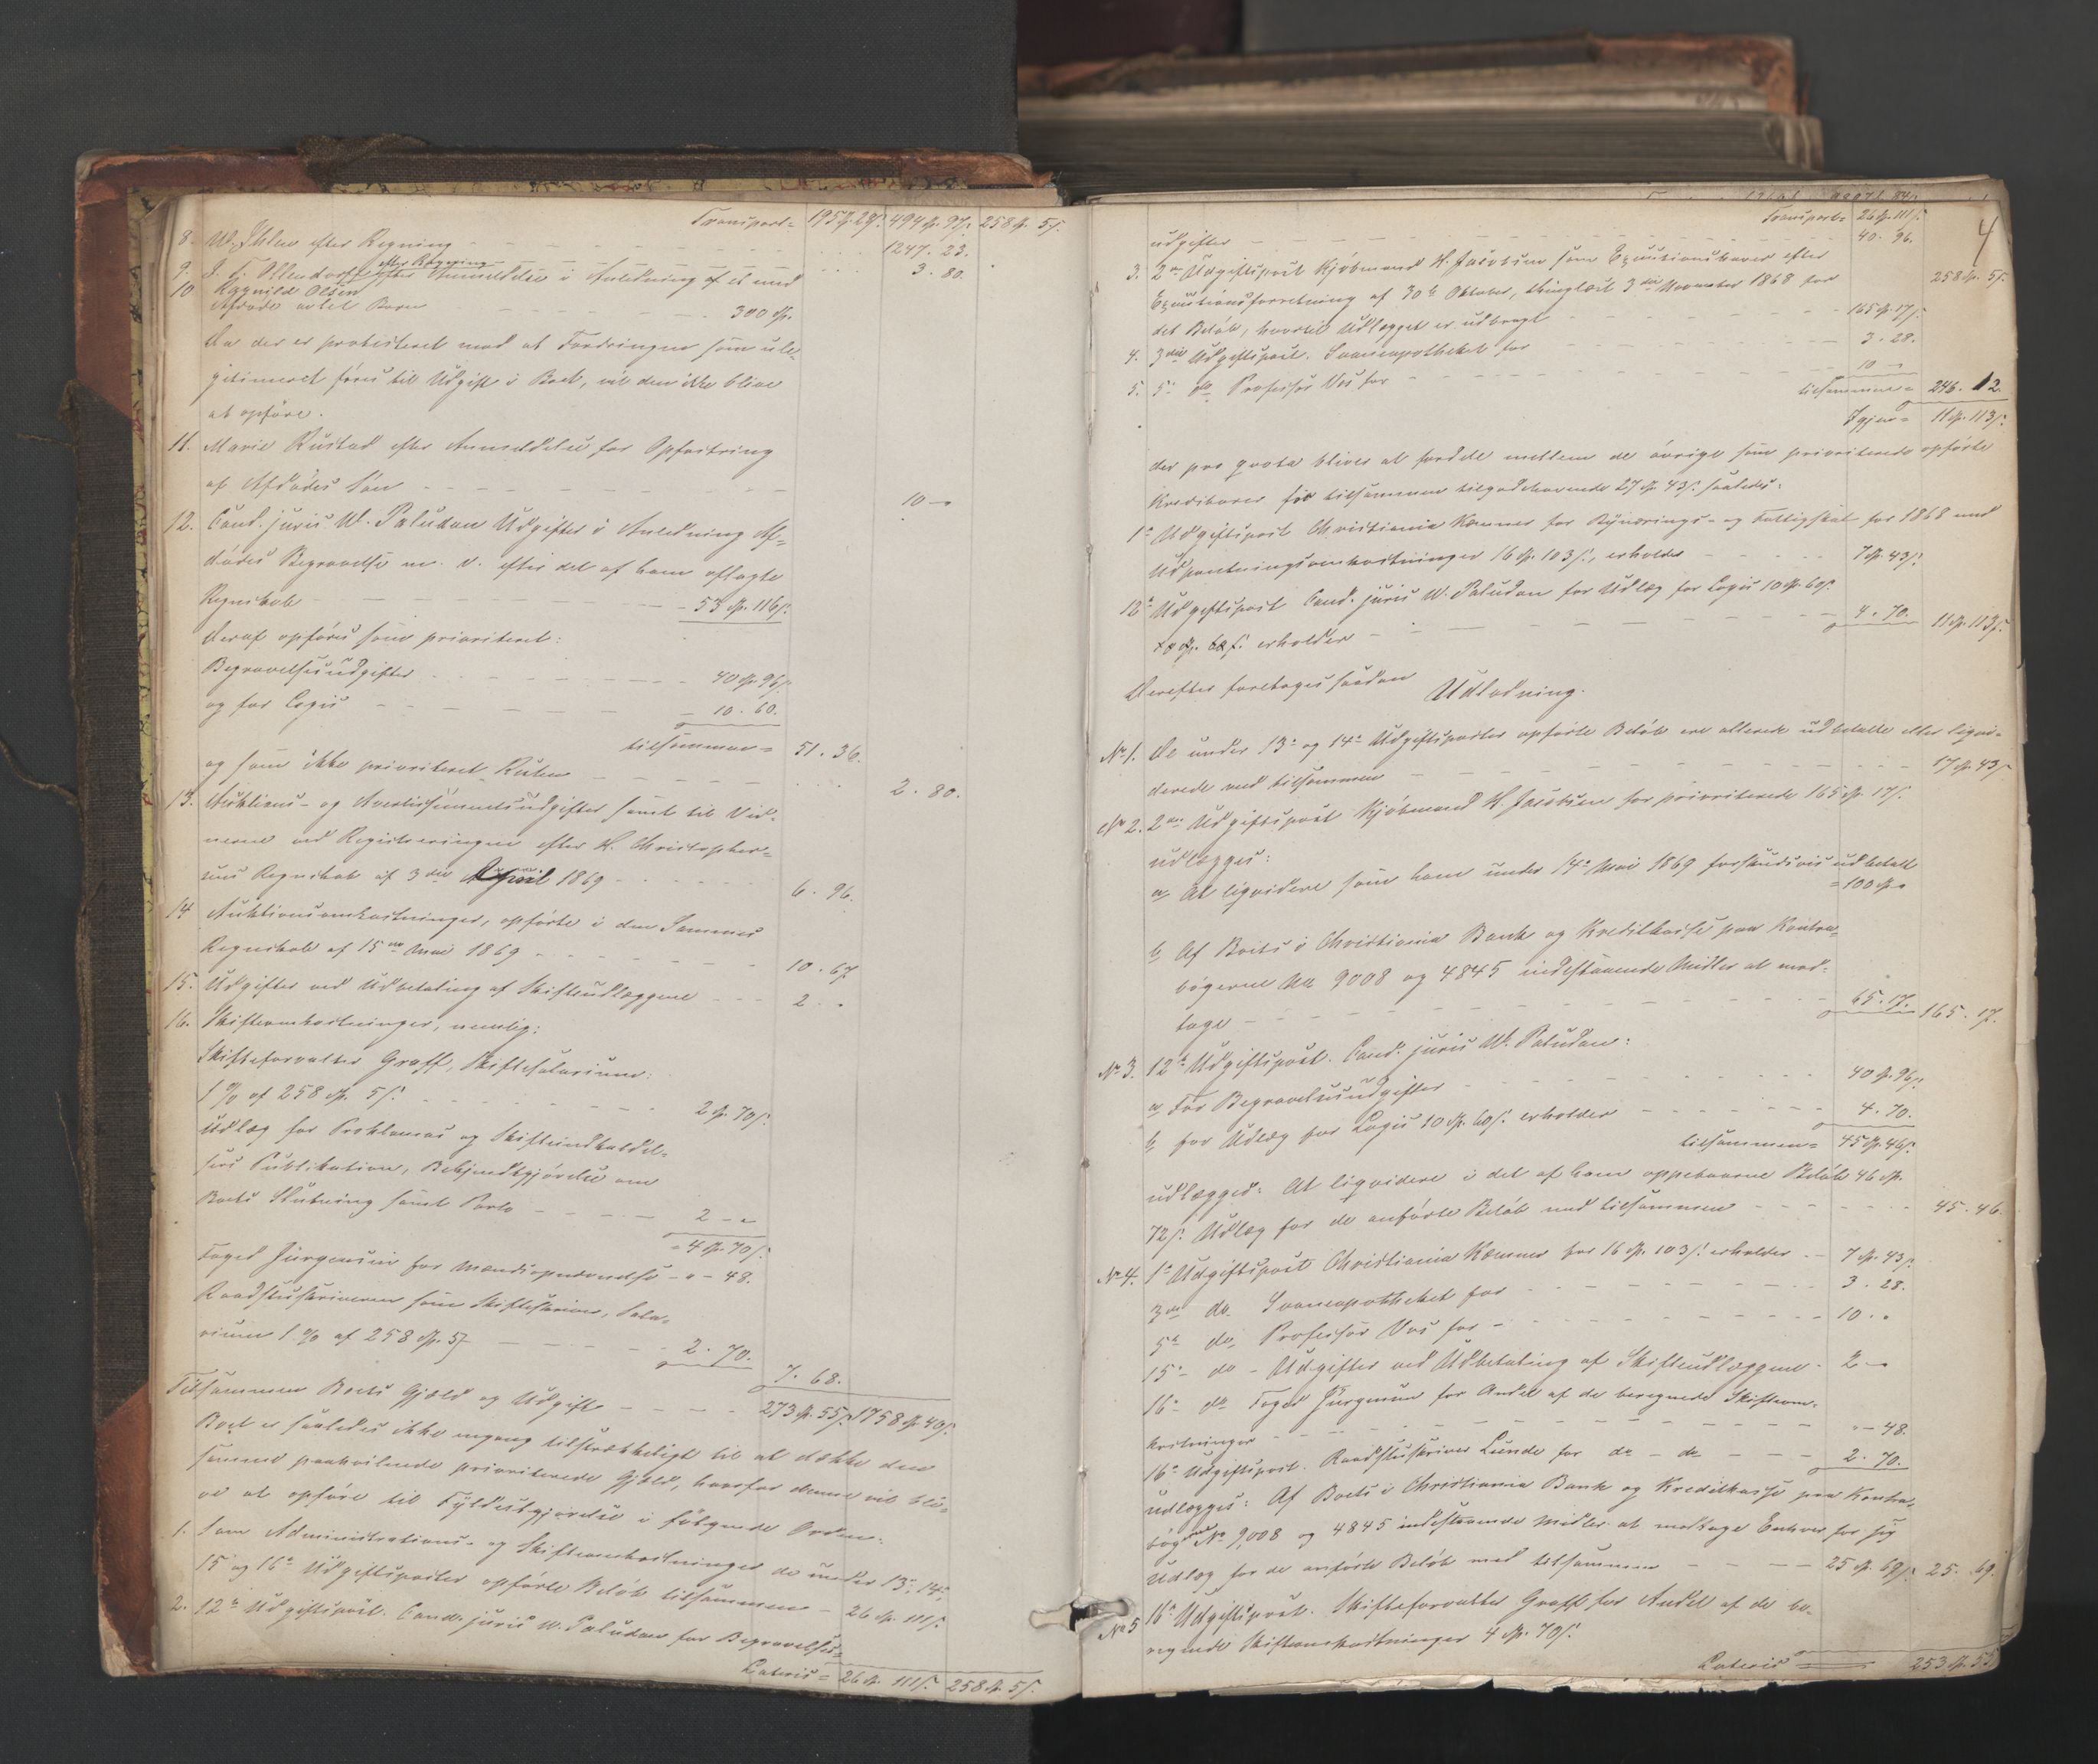 Transport= 195 Sp. 28 s. 494 Sp. 97 s. 258 Sp. 5 s.
8. W. Ihlen efter Regning 1247. 23.
9. J. F. Ollendorff efter Regning 3. 80.
10 Ragnild Olsen efter Anmeldelse i Anledning af et med
Afdøde avlet Barn 300 Sp.
Da der er protesteret mod at Fordringen som ule-
gitimeret føres til Udgift i Boet, vil den ikke blive
at opføre.
11. Marie Rustad efter Anmeldelse for Opfostring
af Afdødes Søn 10 -
12. Cand. juris W. Paludan Udgifter i Anledning Af-
dødes Begravelse m. v. efter det af ham aflagte
Regnskab 53 Sp. 116 s.
Deraf opføres som prioriteret:
Begravelsesudgifter 40 Sp. 96 s.
og for Logis 10. 60.
tilsammen = 51. 36.
og som ikke prioriteret Resten 2. 80.
13. Auktions- og Avertissementsudgifter samt til Vid-
nerne ved Registreringen efter H. Christopher-
sens Regnskab af 3die April 1869 6. 96.
14 Auktionsomkostninger, opførte i den Sammes
Regnskab af 15de Mai 1869 10. 67.
15. Udgifter ved Udbetaling af Skifteudlæggene 2. "
16. Skifteomkostninger, nemlig:
Skifteforvalter Graff, Skiftesalarium:
1 % af 258 Sp. 5 s. 2 Sp. 70 s.
Udlæg for Proklamas og Skifteindkaldel-
sers Publikation, Bekjendtgjørelse om
Boets Slutning samt Porto 2 - "
= 4 Sp. 70 s.
Foged Jürgensen for Mændsopnævnelse - " - 48.
Raadstuskriveren som Skifteskriver, Sala-
rium 1 % af 258 Sp. 5 s. 2. 70.
7. 68.
Tilsammen Boets Gjæld og Udgift 273 Sp. 55 s. 1758 Sp. 40 s.
Boet er saaledes ikke engang tilstrækkeligt til at dække den
samme paahvilende prioriterede Gjæld, hvorfor denne vil bli-
ve at opføre til Fyldestgjørelse i følgende Orden:
1. Som Administrations- og Skifteomkostninger de under 13, 14,
15 og 16de Udgiftsposter opførte Beløb tilsammen - 26 Sp. 111 s.
2. 12te Udgiftspost. Cand. juris W. Paludan for Begravelses-
Lateris = 26 Sp. 111 s. 258 Sp. 5 s.
4
Transport= 26 Sp. 111 s. 258 Sp. 5 s.
udgifter 40. 96.
3. 2den Udgiftspost Kjøbmand H. Jacobsen som Exequutionshaver efter
Exequutionsforretning af 30te Oktober, thinglæst 3die November 1868 for
det Beløb, hvortil Udlægget er udbragt 165 Sp. 17 s.
4. 3die Udgiftspost. Svaneapotheket for 3. 28.
5. 5te do. Professor Vos for 10 -
tilsammen = 246. 12.
Igjen = 11 Sp. 113 s.
der pro qvota bliver at fordele mellem de øvrige som prioriterede opførte
Kreditorer for tilsammen tilgodehavende 27 Sp. 43 s. saaledes:
1te Udgiftspost Christiania Kæmner for Bynærings- og Fattigskat for 1868 med
Udpantningsomkostninger 16 Sp. 103 s., erholder 7 Sp. 43 s.
12te Udgiftspost Cand. juris W. Paludan for Udlæg for Logis 10 Sp. 60 s.
erholder 4. 70. 11 Sp. 113 s.
Derefter foretages saadan
Udlodning.
No 1. De under 13de og 14de Udgiftsposter opførte Beløb ere allerede udbetalte eller liqvi-
derede med tilsammen 17 Sp. 43 s.
No 2. 2den Udgiftspost Kjøbmand H. Jacobsen for prioriterede 165 Sp. 17 s.
udlægges:
a, At liqvidere som ham under 14de Mai 1869 forskudsvis udbetalt
= 100 Sp. "
b, Af Boets i Christiania Bank og Kreditkasse paa Kontra-
bøgerne No 9008 og 4845 indestaaende Midler at mod-
tage 65. 17. 165. 17.
No 3. 12te Udgiftspost. Cand. juris W. Paludan:
a, For Begravelsesudgifter 40 Sp. 96 s.
b, for Udlæg for Logis 10 Sp. 60 s. erholder 4. 70.
tilsammen = 45 Sp. 46 s.
udlægges: At liqvidere i det af ham oppebaarne Beløb 46 Sp.
72 s. Udlæg for de anførte Beløb med tilsammen 45. 46.
No 4. 1te Udgiftspost Christiania Kæmner for 16 Sp. 103 s. erholder 7 Sp. 43 s.
3die do. Svaneapotheket for 3. 28.
5te do. Professor Vos for 10. "
15de do - Udgifter ved Udbetaling af Skifteudlæggene 2 - "
16de do Foged Jürgensen for Andel af de beregnede Skifteom-
kostninger " - 48.
16de Udgiftspost. Raadstuskriver Lunde for do - do 2. 70.
udlægges: Af Boets i Christiania Bank og Kreditkasse paa Kontra-
bøgerne No 9008 og 4845 indestaaende Midler at modtage Enhver for sig
Udlæg for de anførte Beløb med tilsammen 25 Sp. 69 s. 25. 69.
No 5 16de Udgiftspost. Skifteforvalter Graff for Andel af de be-
regnede Skifteomkostninger 4 Sp. 70 s.
Lateris 253 Sp. 55